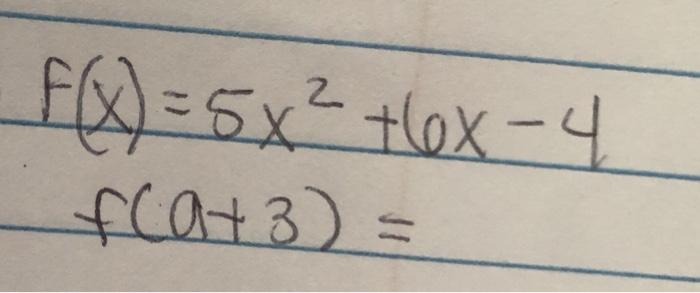 F(x) = 5x² + 6x - 4
f(a+3) =